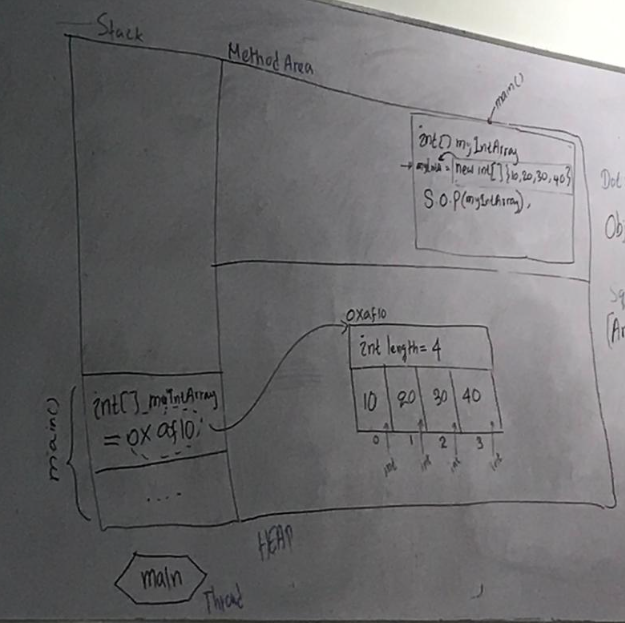 Stack
Method Area
main()
int[] myIntArray
= new int[]{10,20,30,40}
S.O.P(myIntArray),
Dot
Obj
0xaf10
int length=4
10 20 30 40
0 1 2 3
int int int int
main()
int[] myIntArray
= 0x af10;
....
HEAP
main
Thread